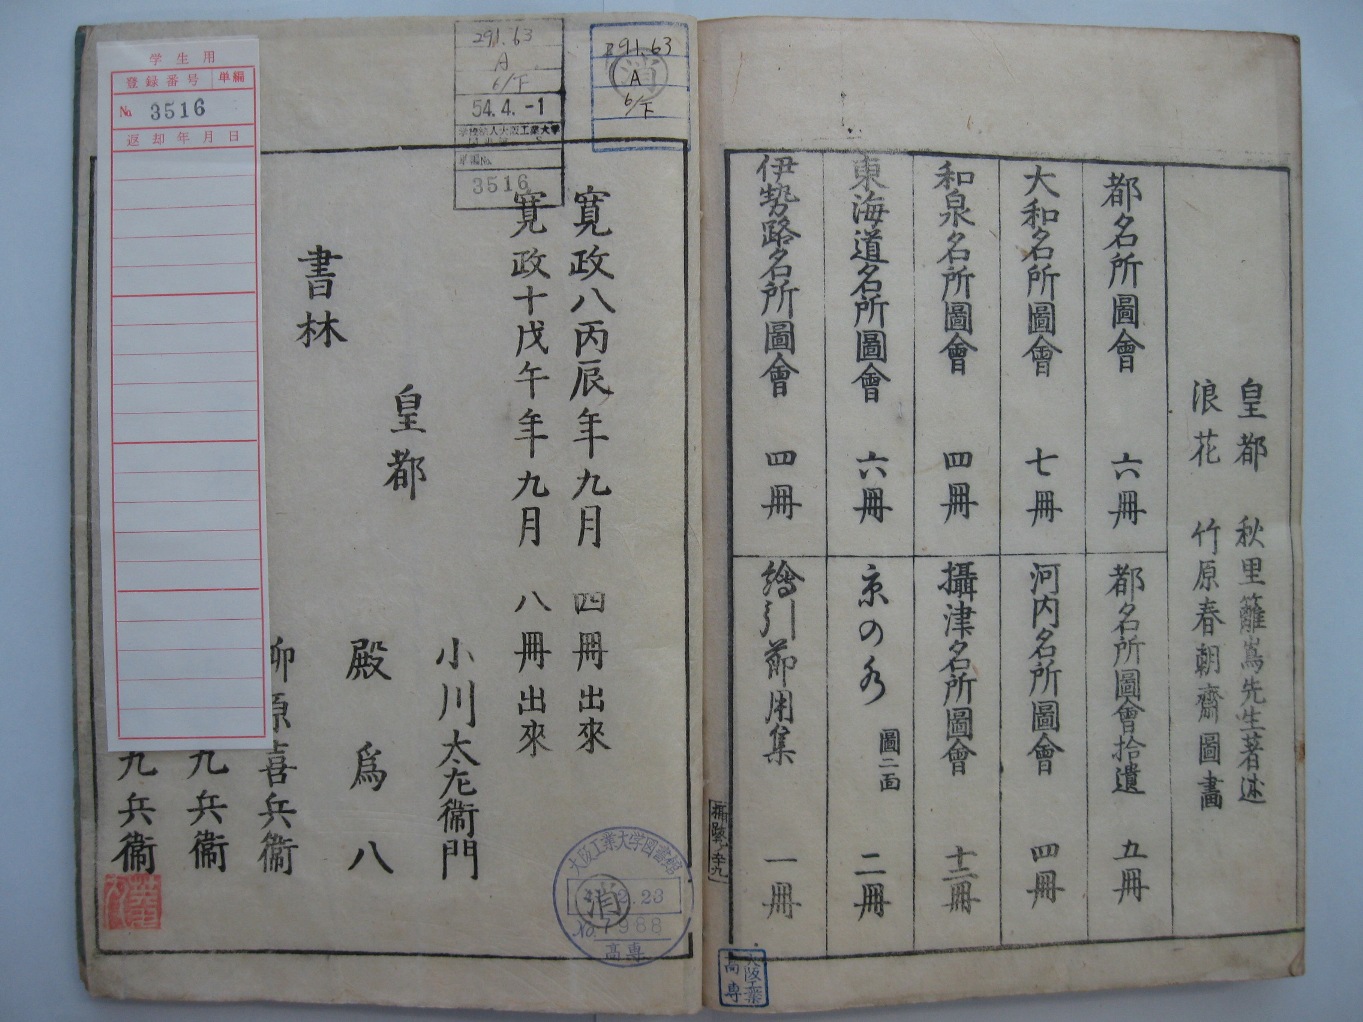 皇都　秋里籬嶌先生著述
浪花　竹原春朝齋圖畫
都名所圖會　六冊
都名所圖會拾遺　五冊
大和名所圖會　七冊
河内名所圖會　四冊
和泉名所圖會　四冊
攝津名所圖會　十二冊
東海道名所圖會　六冊
京の水　圖二面　二冊
伊勢路名所圖會　四冊
繪引節用集　一冊
大阪工業
高専
291.63
A
6/下
消
291.63
A
6/下
54.4.-1
学校法人大阪工業大学
単編No.
3516
寛政八丙辰年九月　四冊出來
寛政十戊午年九月　八冊出來
書林
皇都
小川太左衞門
殿爲八
柳原喜兵衞
九兵衞
九兵衞
大阪工業大学図書館
消
2.23
No.
988
高専
学生用
登録番号
単編
No. 3516
返却年月日